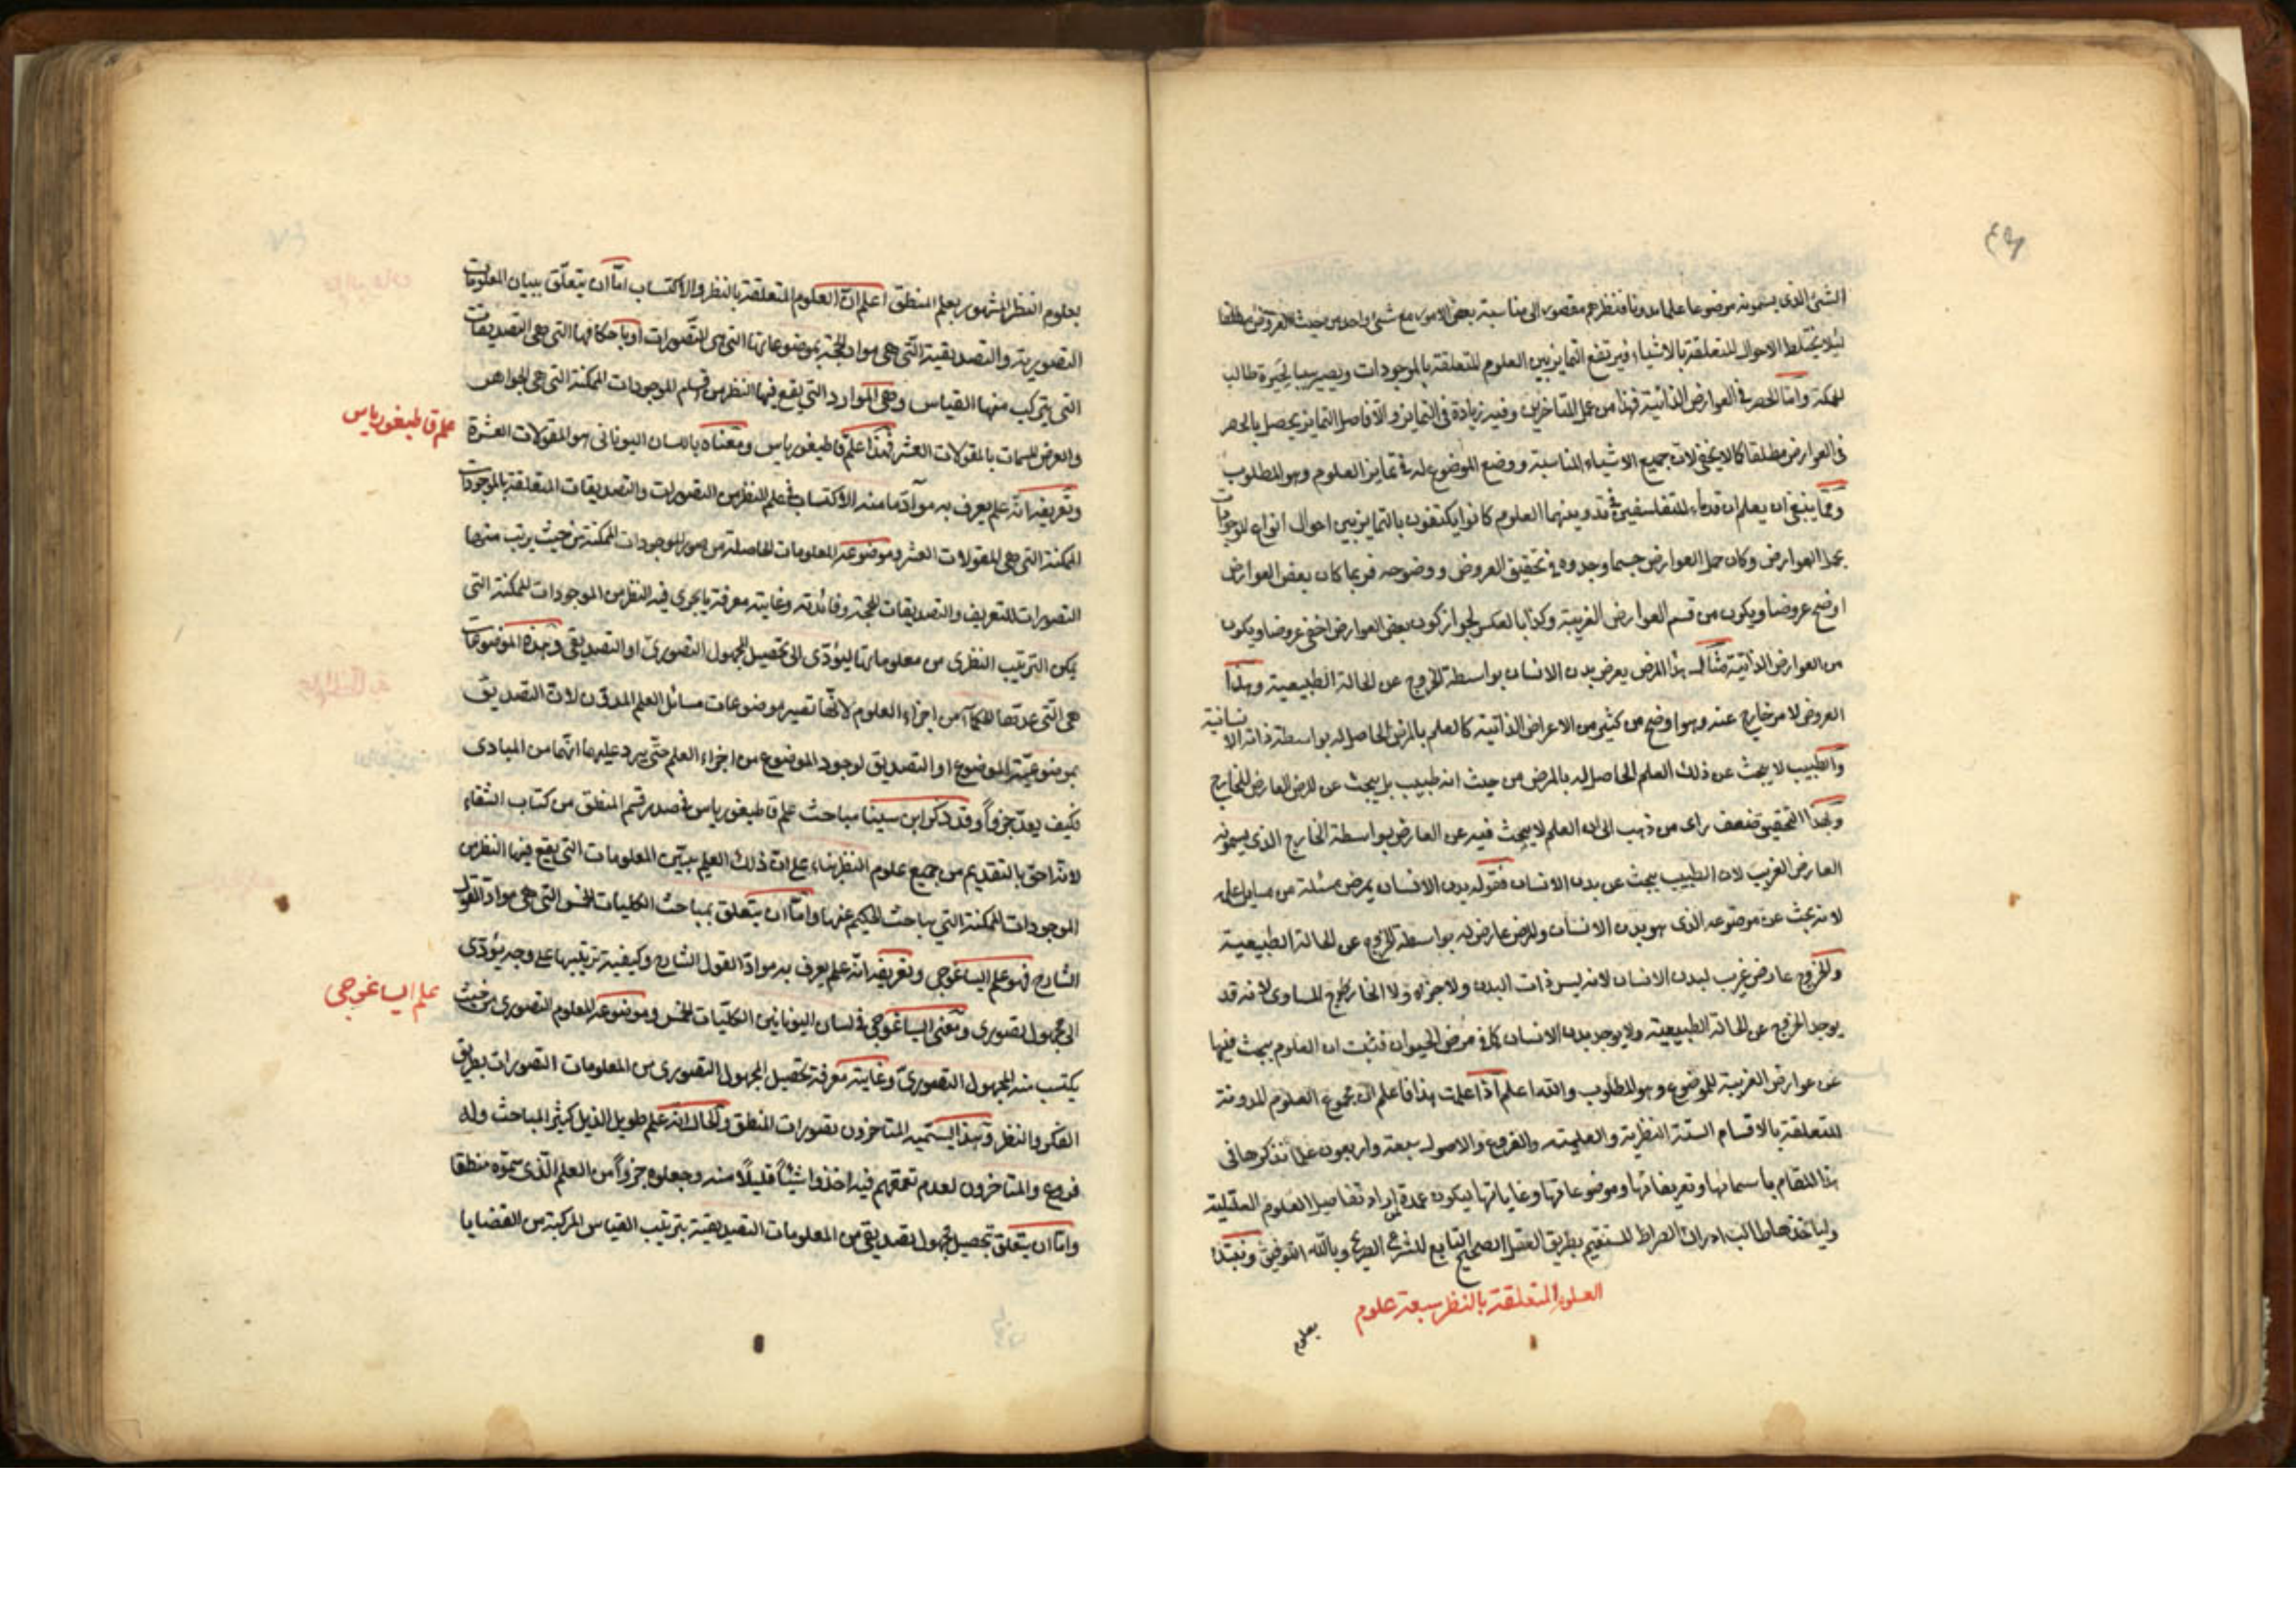 الشئ الذى يسمونه موضوعا علما مدونا فنظرهم مقصور الى مناسبة بعض الامور مع شئ واحد من حيث العروض مطلقا
لئلا يختلط الاحوال المتعلقة بالاشياء ويرتفع التمايز بين العلوم المتعلقة بالموجودات ويصير سببا لحيرة طالب
الحكمة واما الحصر فى العوارض الذاتية فهذا من عمل المتاخرين وفيه زيادة فى التمايز والا فاصل التمايز يحصل بالحصر
فى العوارض مطلقا كما لا يخفى لان جميع الاشياء المناسبة ووضع الموضوع له فى تمايز العلوم وهو المطلوب
ومما ينبغى ان يعلم ان قدماء المتفلسفين فى تدوينهما العلوم كانوا يكتفون بالتمايز بين احوال انواع الموجودات
بحمل العوارض وكان حمل العوارض حسبما وجدوه فى تحقيق العروض ووضوحه فربما كان بعض العوارض
اوضح عروضا ويكون من قسم العوارض الغريبة وكذا بالعكس لجواز كون بعض العوارض اخفى عروضا ويكون
من العوارض الذاتية مثاله هذا المرض يعرض بدن الانسان بواسطة الخروج عن الحالة الطبيعية وهذا
العروض لامر خارج عنه وهو اوضح من كثير من الاعراض الذاتية كالعلم بالمرض الحاصل له بواسطة ذاته الانسانية
والطبيب لا يبحث عن ذلك العلم الحاصل له بالمرض من حيث انه طبيب بل يبحث عن المرض العارض للخارج
وبهذا التحقيق ضعف راى من ذهب الى ان العلم لا يبحث فيه عن العارض بواسطة الخارج الذى يسمونه
العارض الغريب لان الطبيب يبحث عن بدن الانسان فقوله بدن الانسان يمرض مسئلة من مسايل علمه
لانه بحث عن موضوعه الذى هو بدن الانسان والمرض عارض له بواسطة الخروج عن الحالة الطبيعية
والخروج عارض غريب لبدن الانسان لانه ليس ذات البدن ولا جزئه ولا الخارج المساوى لانه قد
يوجد الخروج عن الحالة الطبيعية ولا يوجد بدن الانسان كما فى مرض الحيوان فثبت ان العلوم يبحث فيها
عن عوارض الغريبة للموضوع وهو المطلوب والله اعلم اذا علمت هذا فاعلم ان مجموع العلوم المدونة
المتعلقة بالاقسام الستة النظرية والعلمية والفروع والاصول سبعة واربعون علما نذكرها فى
هذا المقام باسمائها وتعريفاتها وموضوعاتها وغاياتها ليكون عمدة لمن اراد تفاصيل العلوم العقلية
ولياخذها طالب ادراك الصراط المستقيم بطريق العقل الصحيح التابع للشرع الصريح وبالله التوفيق ونبتدا
العلوم المتعلقة بالنظر سبعة علوم
بعلوم
بعلوم النظر المشهور بعلم المنطق اعلم ان العلوم المتعلقة بالنظر والاكتساب اما ان يتعلق ببيان المعلومات
التصورية والتصديقية التى هى مواد الحجة بموضوعاتها التى هى التصورات او باحكامها التى هى التصديقات
التى يتركب منها القياس وهى الموارد التى يقع فيها النظر من قسم الموجودات الممكنة التى هى الجواهر
والعرض المسمات بالمقولات العشر فهذا علم قاطيغورياس ومعناه باللسان اليونانى هو المقولات العشرة
علم قاطيغورياس
وتعريفه انه علم يعرف به مواد ما منه الاكتساب فى علم النظر من التصورات والتصديقات المتعلقة بالموجودات
الممكنة التى هى المقولات العشر وموضوعه المعلومات الحاصلة من صور الموجودات الممكنة من حيث يرتب منها
التصورات للتعريف والتصديقات للحجة وفائدته وغايته معرفة ما يجرى فيه النظر من الموجودات الممكنة التى
يمكن الترتيب النظرى من معلوماتها ليؤدى الى تحصيل المجهول التصورى او التصديقى وهذه الموضوعات
هى التى عدتها الحكماء من اجزاء العلوم لانها تصير موضوعات مسائل العلم المدون لان التصديق
بموضوعية الموضوع او التصديق لوجود الموضوع من اجزاء العلم حتى يرد عليها انها من المبادى
فكيف يعد جزوا وقد ذكر ابن سينا مباحث علم قاطيغورياس فى صدر قسم المنطق من كتاب الشفاء
لانه احق بالتقديم من جميع علوم النظر بناء على ان ذلك العلم يبين المعلومات التى يقع فيها النظر من
الموجودات الممكنة التى يباحث الحكيم عنها واما ان يتعلق بمباحث الكليات الخمس التى هى مواد القول
الشارح فهو علم ايساغوجى وتعريفه انه علم يعرف به مواد القول الشارح وكيفية ترتيبها على وجه يؤدى
علم ايساغوجى
الى مجهول تصورى ومعنى ايساغوجى فى لسان اليونانيين الكليات الخمس وموضوعه المعلوم التصورى من حيث
يكتسب منه المجهول التصورى وغايته معرفة تحصيل المجهول التصورى من المعلومات التصورات بطريق
الفكر والنظر وبهذا يسميه المتاخرون تصورات المنطق والحال انه علم طويل الذيل كثير المباحث وله
فروع والمتاخرون لعدم تعمقهم فيه اخذوا شيئا قليلا منه وجعلوه جزوا من العلم الذى سموه منطقا
واما ان يتعلق بتحصيل مجهول تصديقى من المعلومات التصديقية بترتيب القياس المركبة من القضايا